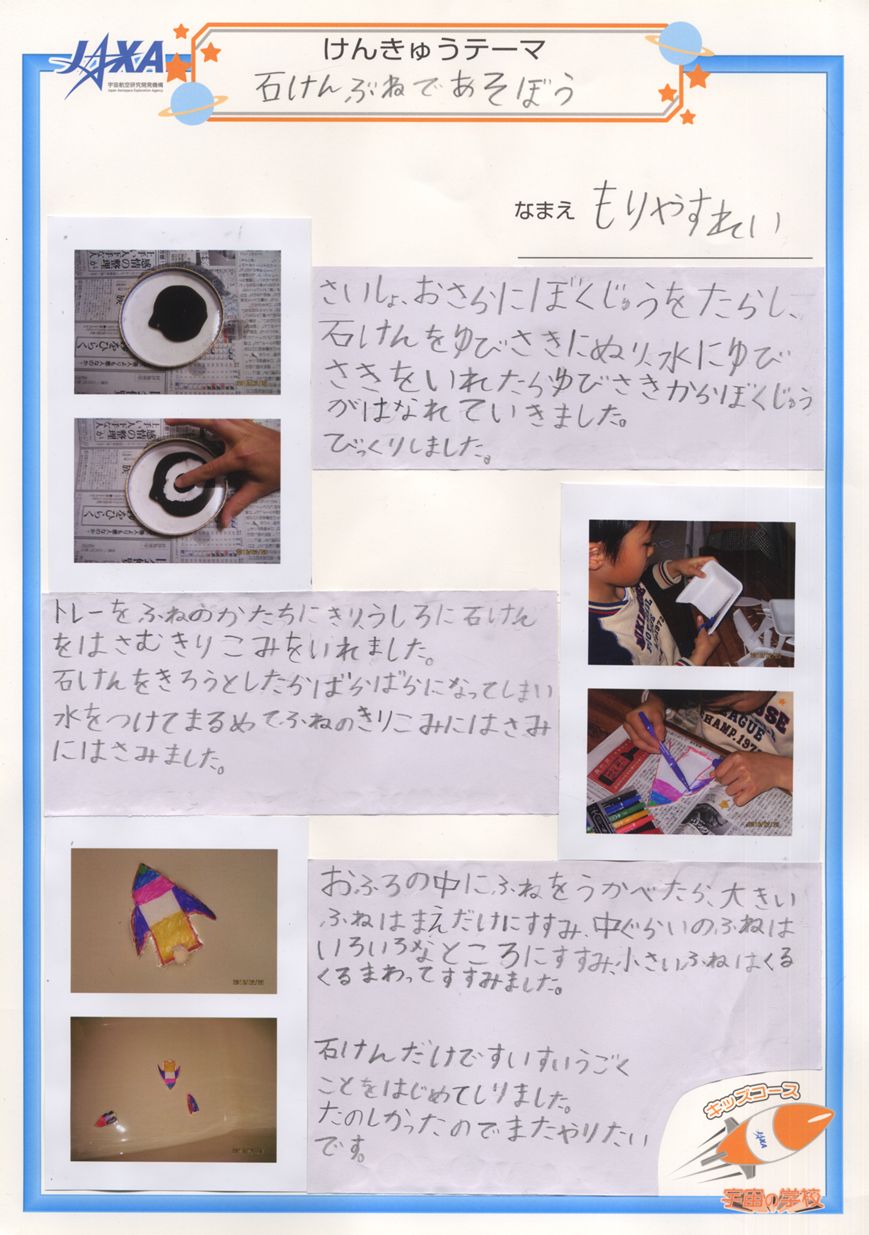 JAXA
宇宙航空研究開発機構
Japan Aerospace Exploration Agency
けんきゅうテーマ
石けんぶねであそぼう
なまえ もりやすれい
さいしょ、おさらにぼくじゅうをたらし、
石けんをゆびさきにぬり、水にゆび
さきをいれたらゆびさきからぼくじゅう
がはなれていきました。
びっくりしました。
トレーをふねのかたちにきり、うしろに石けん
をはさむきりこみをいれました。
石けんをきろうとしたらばらばらになってしまい
水をつけてまるめてふねのきりこみにはさみ
にはさみました。
おふろの中にふねをうかべたら、大きい
ふねはまえだけにすすみ、中ぐらいのふねは
いろいろなところにすすみ、小さいふねはくる
くるまわってすすみました。
石けんだけですいすいうごく
ことをはじめてしりました。
たのしかったのでまたやりたい
です。
キッズコース
JAXA
宇宙の学校